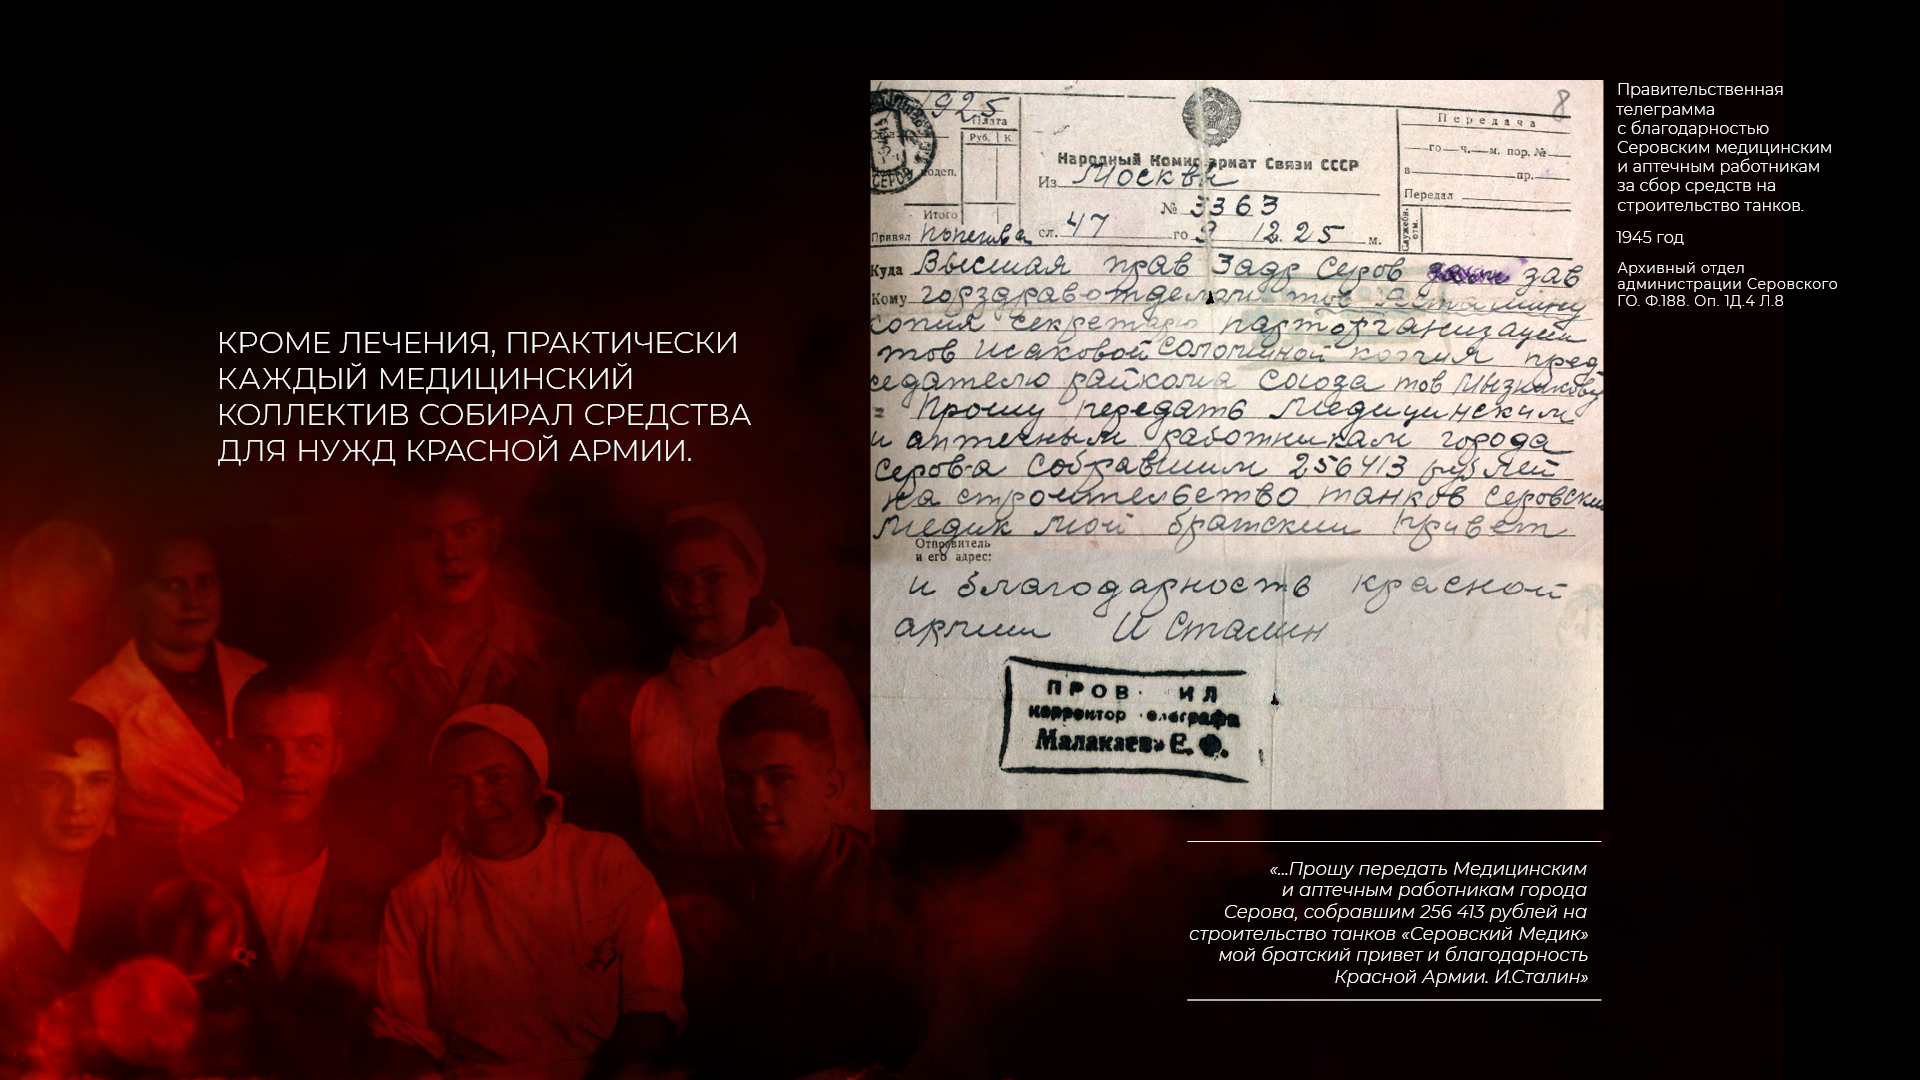 КРОМЕ ЛЕЧЕНИЯ, ПРАКТИЧЕСКИ
КАЖДЫЙ МЕДИЦИНСКИЙ
КОЛЛЕКТИВ СОБИРАЛ СРЕДСТВА
ДЛЯ НУЖД КРАСНОЙ АРМИИ.
1925
8
Плата
Руб. К.
Итого
Принял
Народный Комис ариат Связи СССР
Из Москвы
№ 3363
сл. 47 го 9 12.25 м.
Передача
го ч. м. пор. №
в пр.
Передал
Служебн. отм.
Куда Высшая прав Задр Серов зав
Кому горздравотделом тов
копия секретарю парторганизации
тов Исаковой Соломиной копия пред
седателю райкома Союза тов
= Прошу передать Медицинским
и аптечным работникам города
Серова собравшим 256413 рублей
на строительство танков Серовский
Медик мой братский привет
Отправитель
и его адрес:
и благодарность красной
армии И Сталин
ПРОВ ИЛ
корректор елеграфа
Малакаев Е. Ф.
Правительственная
телеграмма
с благодарностью
Серовским медицинским
и аптечным работникам
за сбор средств на
строительство танков.
1945 год
Архивный отдел
администрации Серовского
ГО. Ф.188. Оп. 1Д.4 Л.8
«...Прошу передать Медицинским
и аптечным работникам города
Серова, собравшим 256 413 рублей на
строительство танков «Серовский Медик»
мой братский привет и благодарность
Красной Армии. И.Сталин»